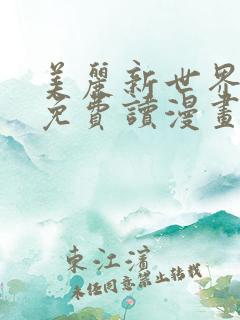 美麗新世界
免費讀漫畫
東江濱
未经同意禁止转载